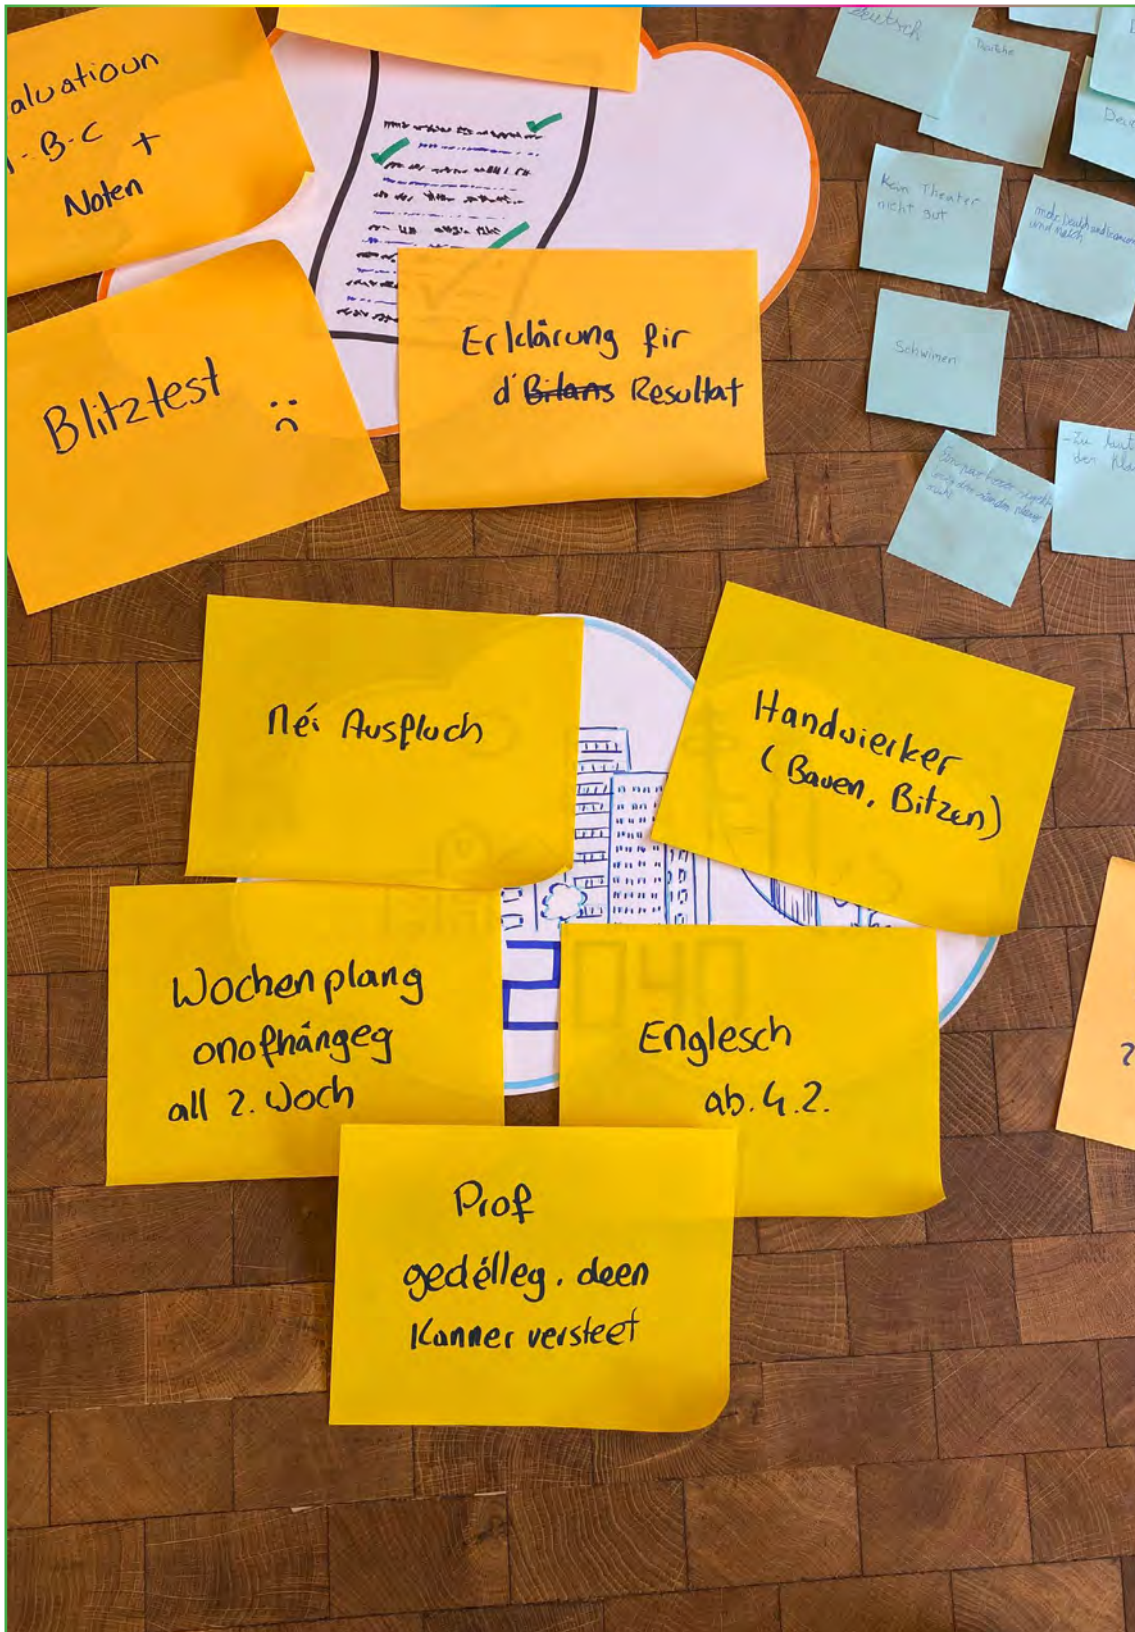 aluatioun
-B-C +
Noten
Blitztest :(
Erklärung fir
d'Bilans Resultat
Deutsch
Kein Theater
nicht gut
Schwimen
Zu laut
der
Méi Ausfluch
Handwierker
(Bauen, Bitzen)
Wochenplang
onofhängeg
all 2. Woch
Englesch
ab. 4.2.
Prof
gedëlleg. deen
Kanner versteet
?